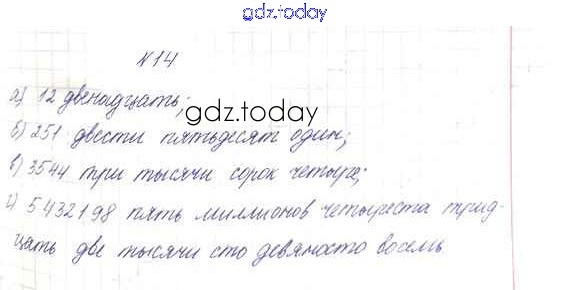 gdz.today
№14
а) 12 двенадцать;
gdz.today
б) 251 двести пятьдесят один;
в) 3544 три тысячи сорок четыре;
г) 5432198 пять миллионов четыреста трид-
цать две тысячи сто девяносто восемь